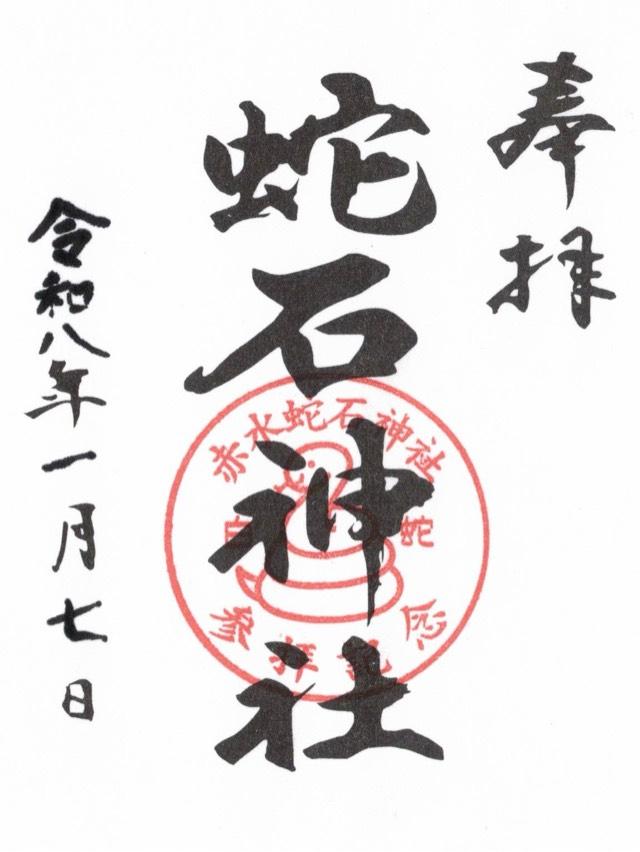 奉拝
蛇石神社
赤水蛇石神社
白蛇
参拝記念
令和八年一月七日